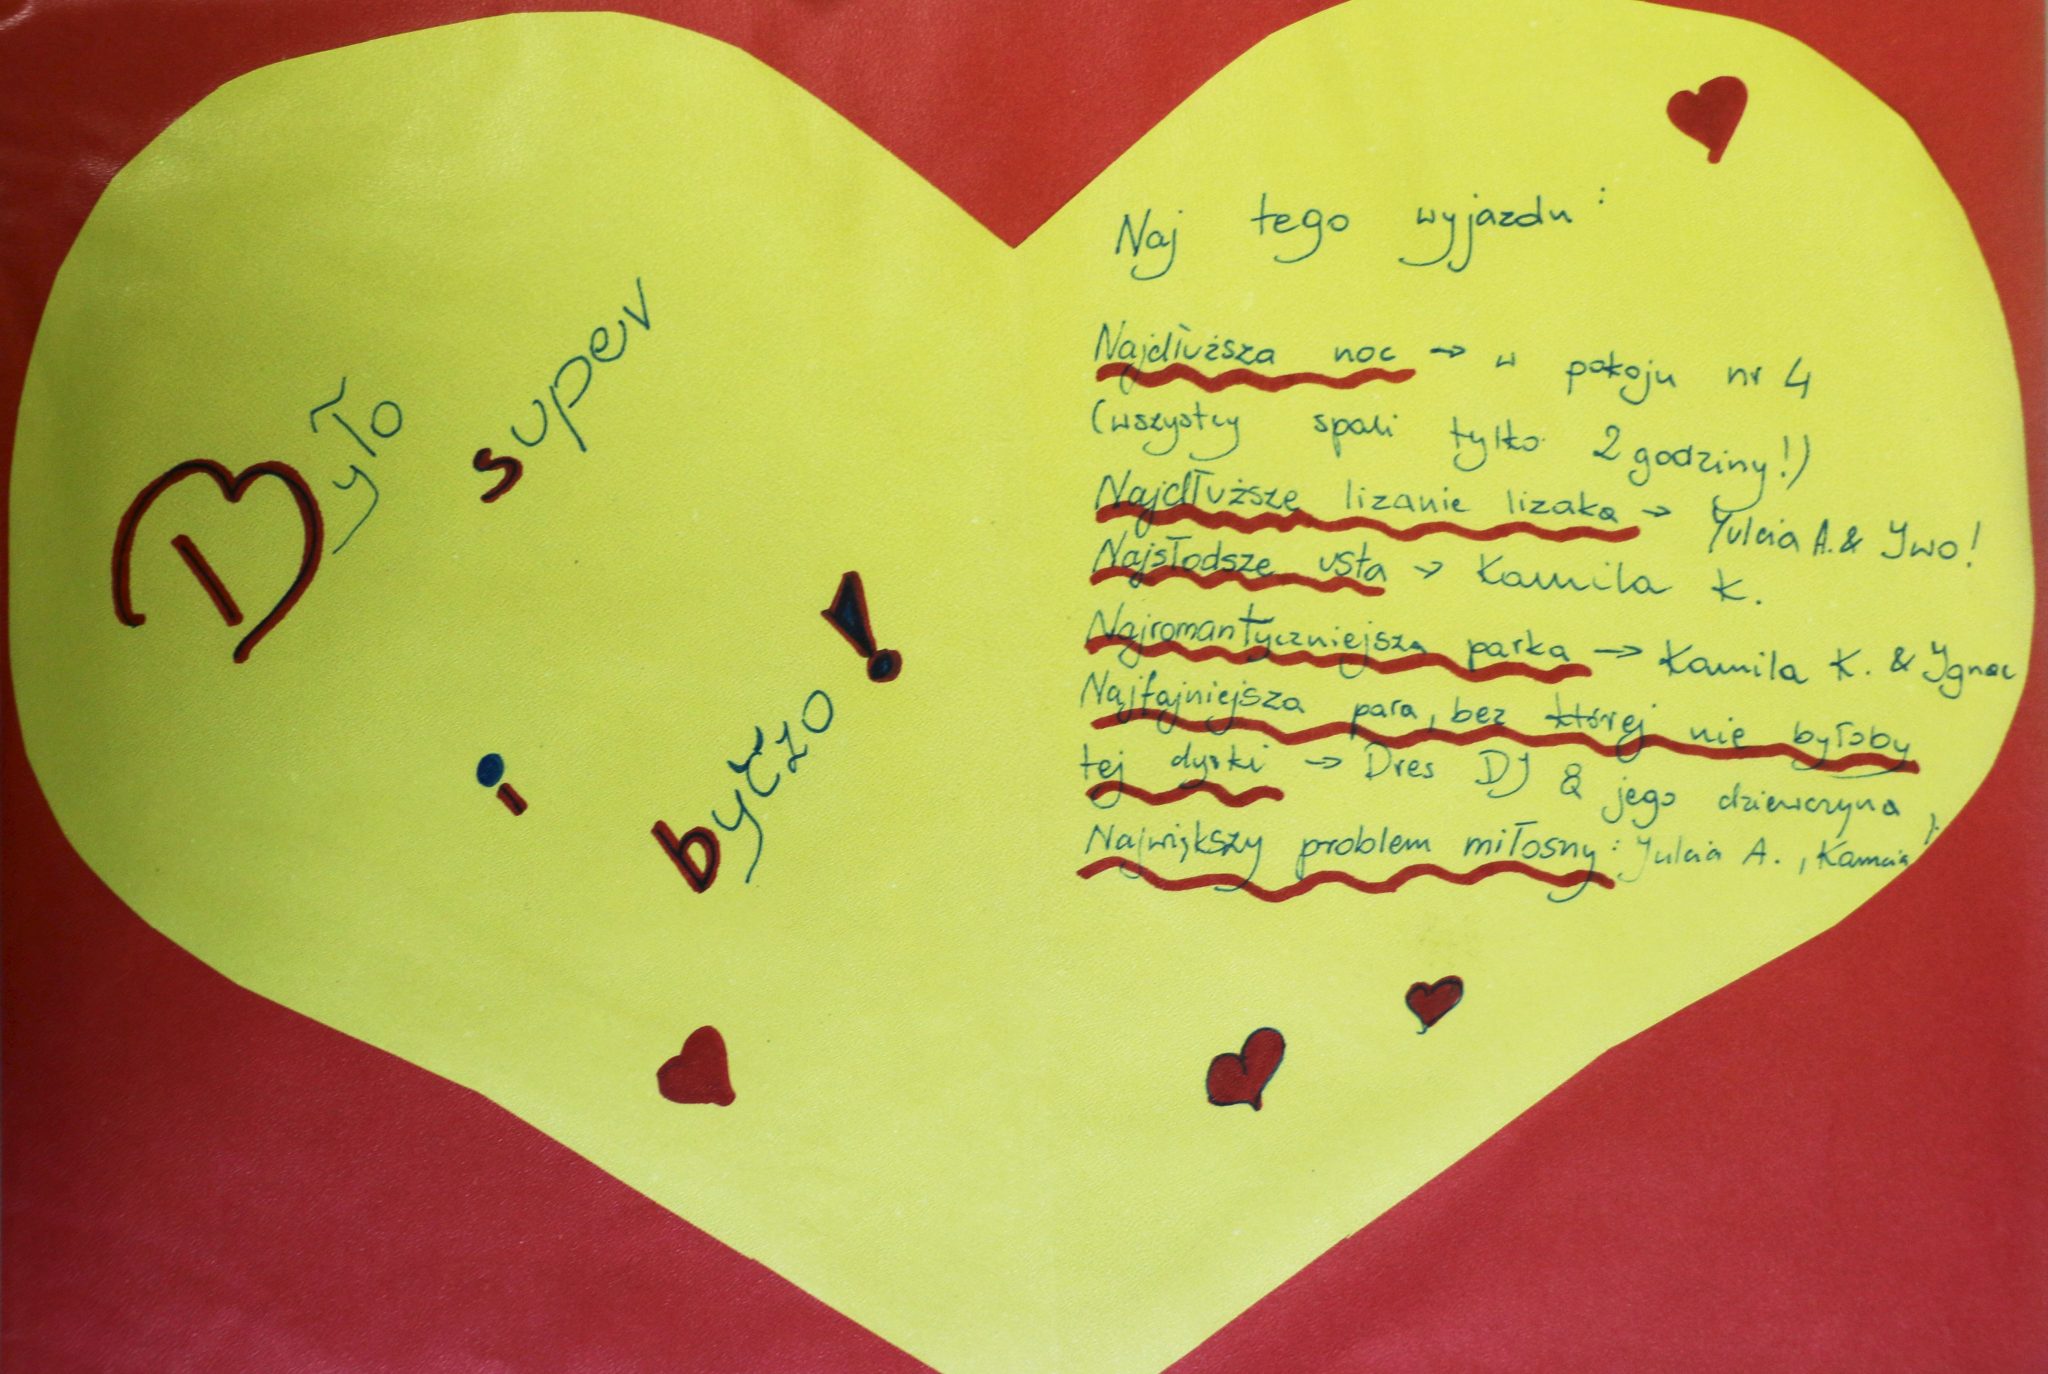 Było super
i byczo!
Naj tego wyjazdu:
Najdłuższa noc → w pokoju nr 4
(wszyscy spali tylko 2 godziny!)
Najdłuższe lizanie lizaka → Julcia A. & Iwo!
Najsłodsze usta → Kamila K.
Najromantyczniejsza parka → Kamila K. & Ignac
Najfajniejsza para, bez której nie byłoby
tej dyski → Dres DJ & jego dziewczyna
Największy problem miłosny: Julcia A., Kamcia